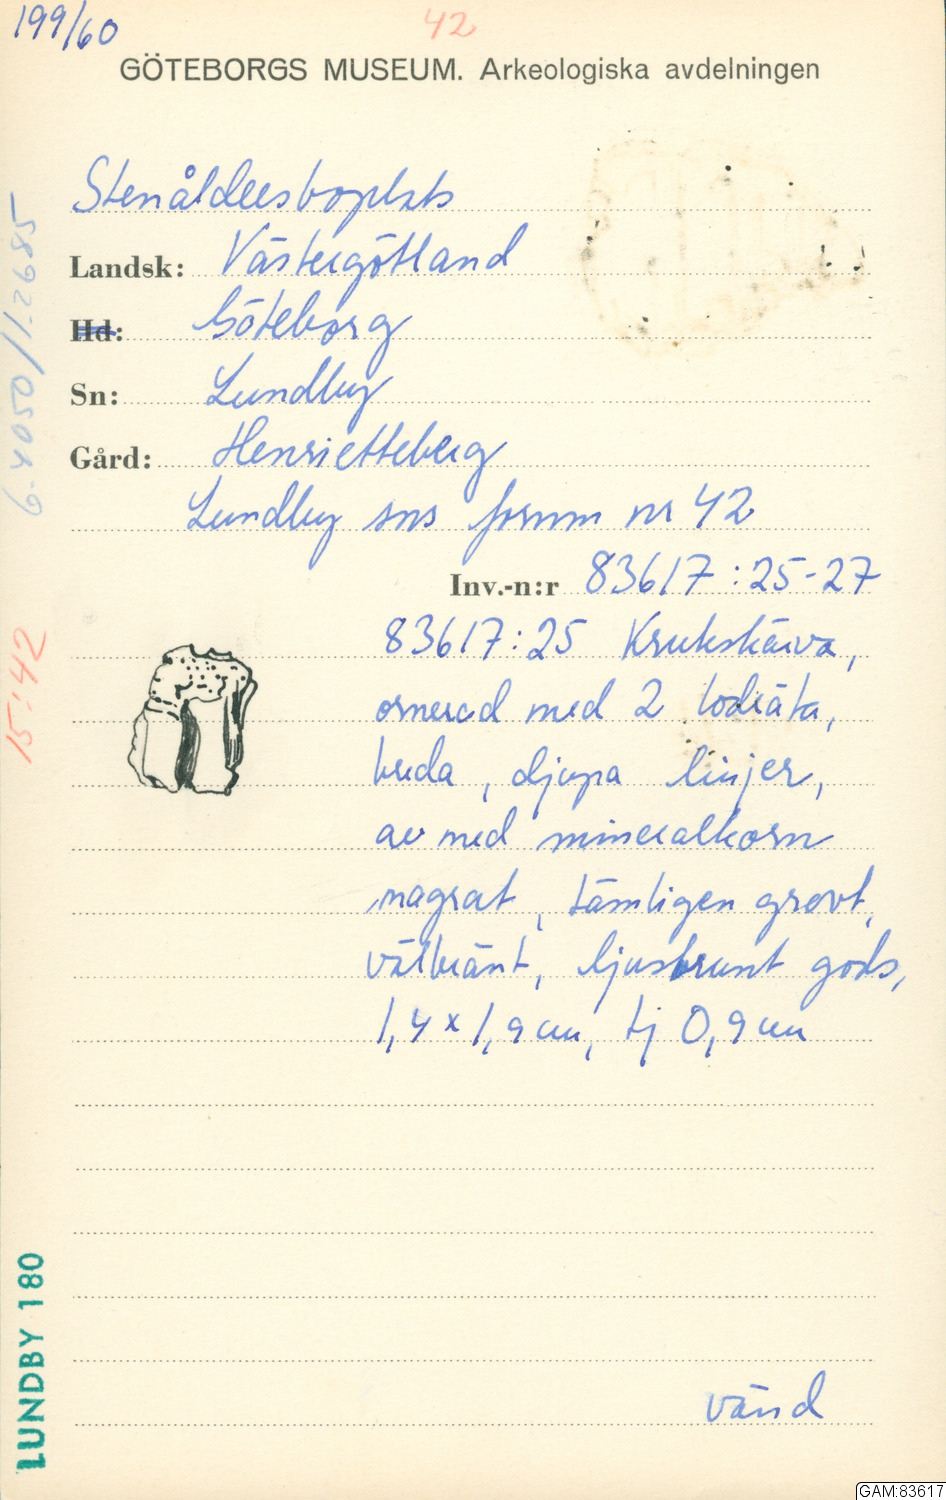 199/60
42
GÖTEBORGS MUSEUM. Arkeologiska avdelningen
Stenåldersboplats
Landsk: Västergötland
Hd: Göteborg
Sn: Lundby
Gård: Henrietteberg
Lundby sns fornm nr 42
Inv.-n:r 83617:25-27
83617:25 Krukskärva,
ornerad med 2 lodräta,
breda, djupa linjer,
av med mineralkorn
magrat, tämligen grovt,
välbränt, ljusbrunt gods,
1,4 x 1,9 cm, tj 0,9 cm
vänd
15:42
LUNDBY 180
GAM:83617